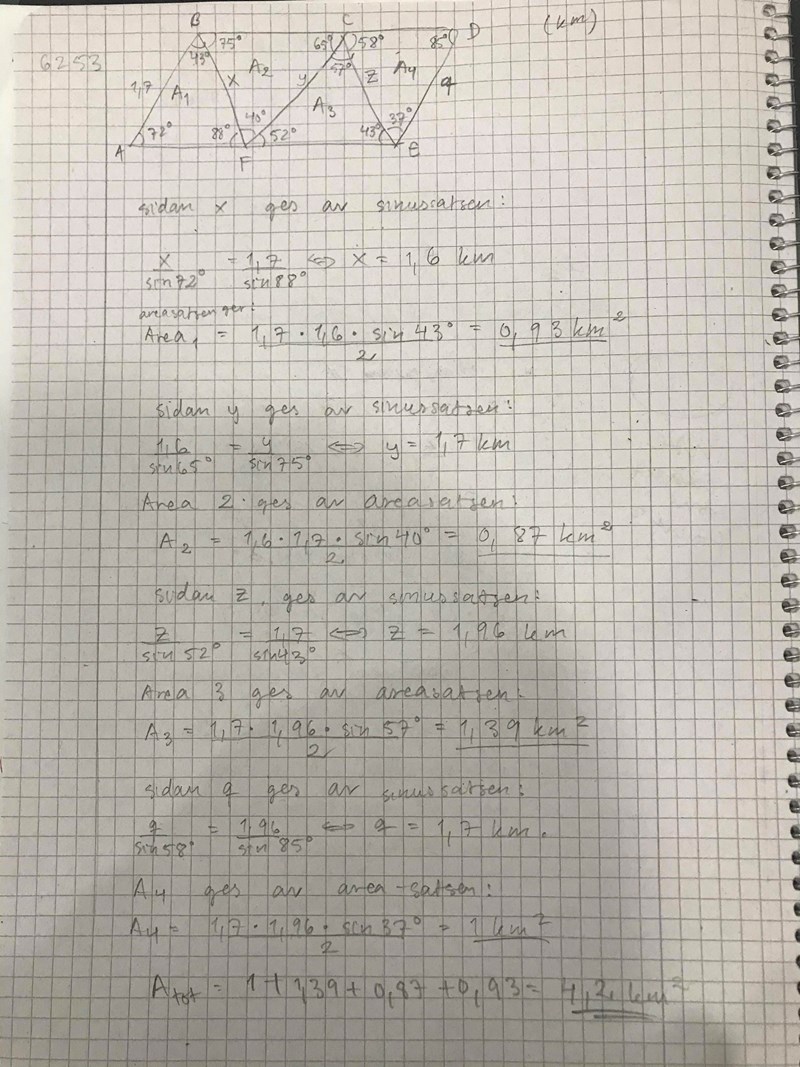 6253
(km)
B C D
75° 65° 58° 85°
43° x A2 y 57° z A4 q
1,7 A1 A3
40° 37°
72° 88° 52° 43°
A F E
sidan x ges av sinussatsen:
x/sin72° = 1,7/sin88° ⇔ x = 1,6 km
areasatsen ger:
Area1 = 1,7 · 1,6 · sin 43°/2 = 0,93 km²
sidan y ges av sinussatsen:
1,6/sin65° = y/sin75° ⇔ y = 1,7 km
Area 2 ges av areasatsen:
A2 = 1,6 · 1,7 · sin 40°/2 = 0,87 km²
sidan z, ges av sinussatsen:
z/sin 52° = 1,7/sin43° ⇔ z = 1,96 km
Area 3 ges av areasatsen:
A3 = 1,7 · 1,96 · sin 57°/2 = 1,39 km²
sidan q ges av sinussatsen:
q/sin58° = 1,96/sin 85° ⇔ q = 1,7 km.
A4 ges av area-satsen:
A4 = 1,7 · 1,96 · sin 37°/2 = 1 km²
Atot = 1 + 1,39 + 0,87 + 0,93 = 4,2 km²